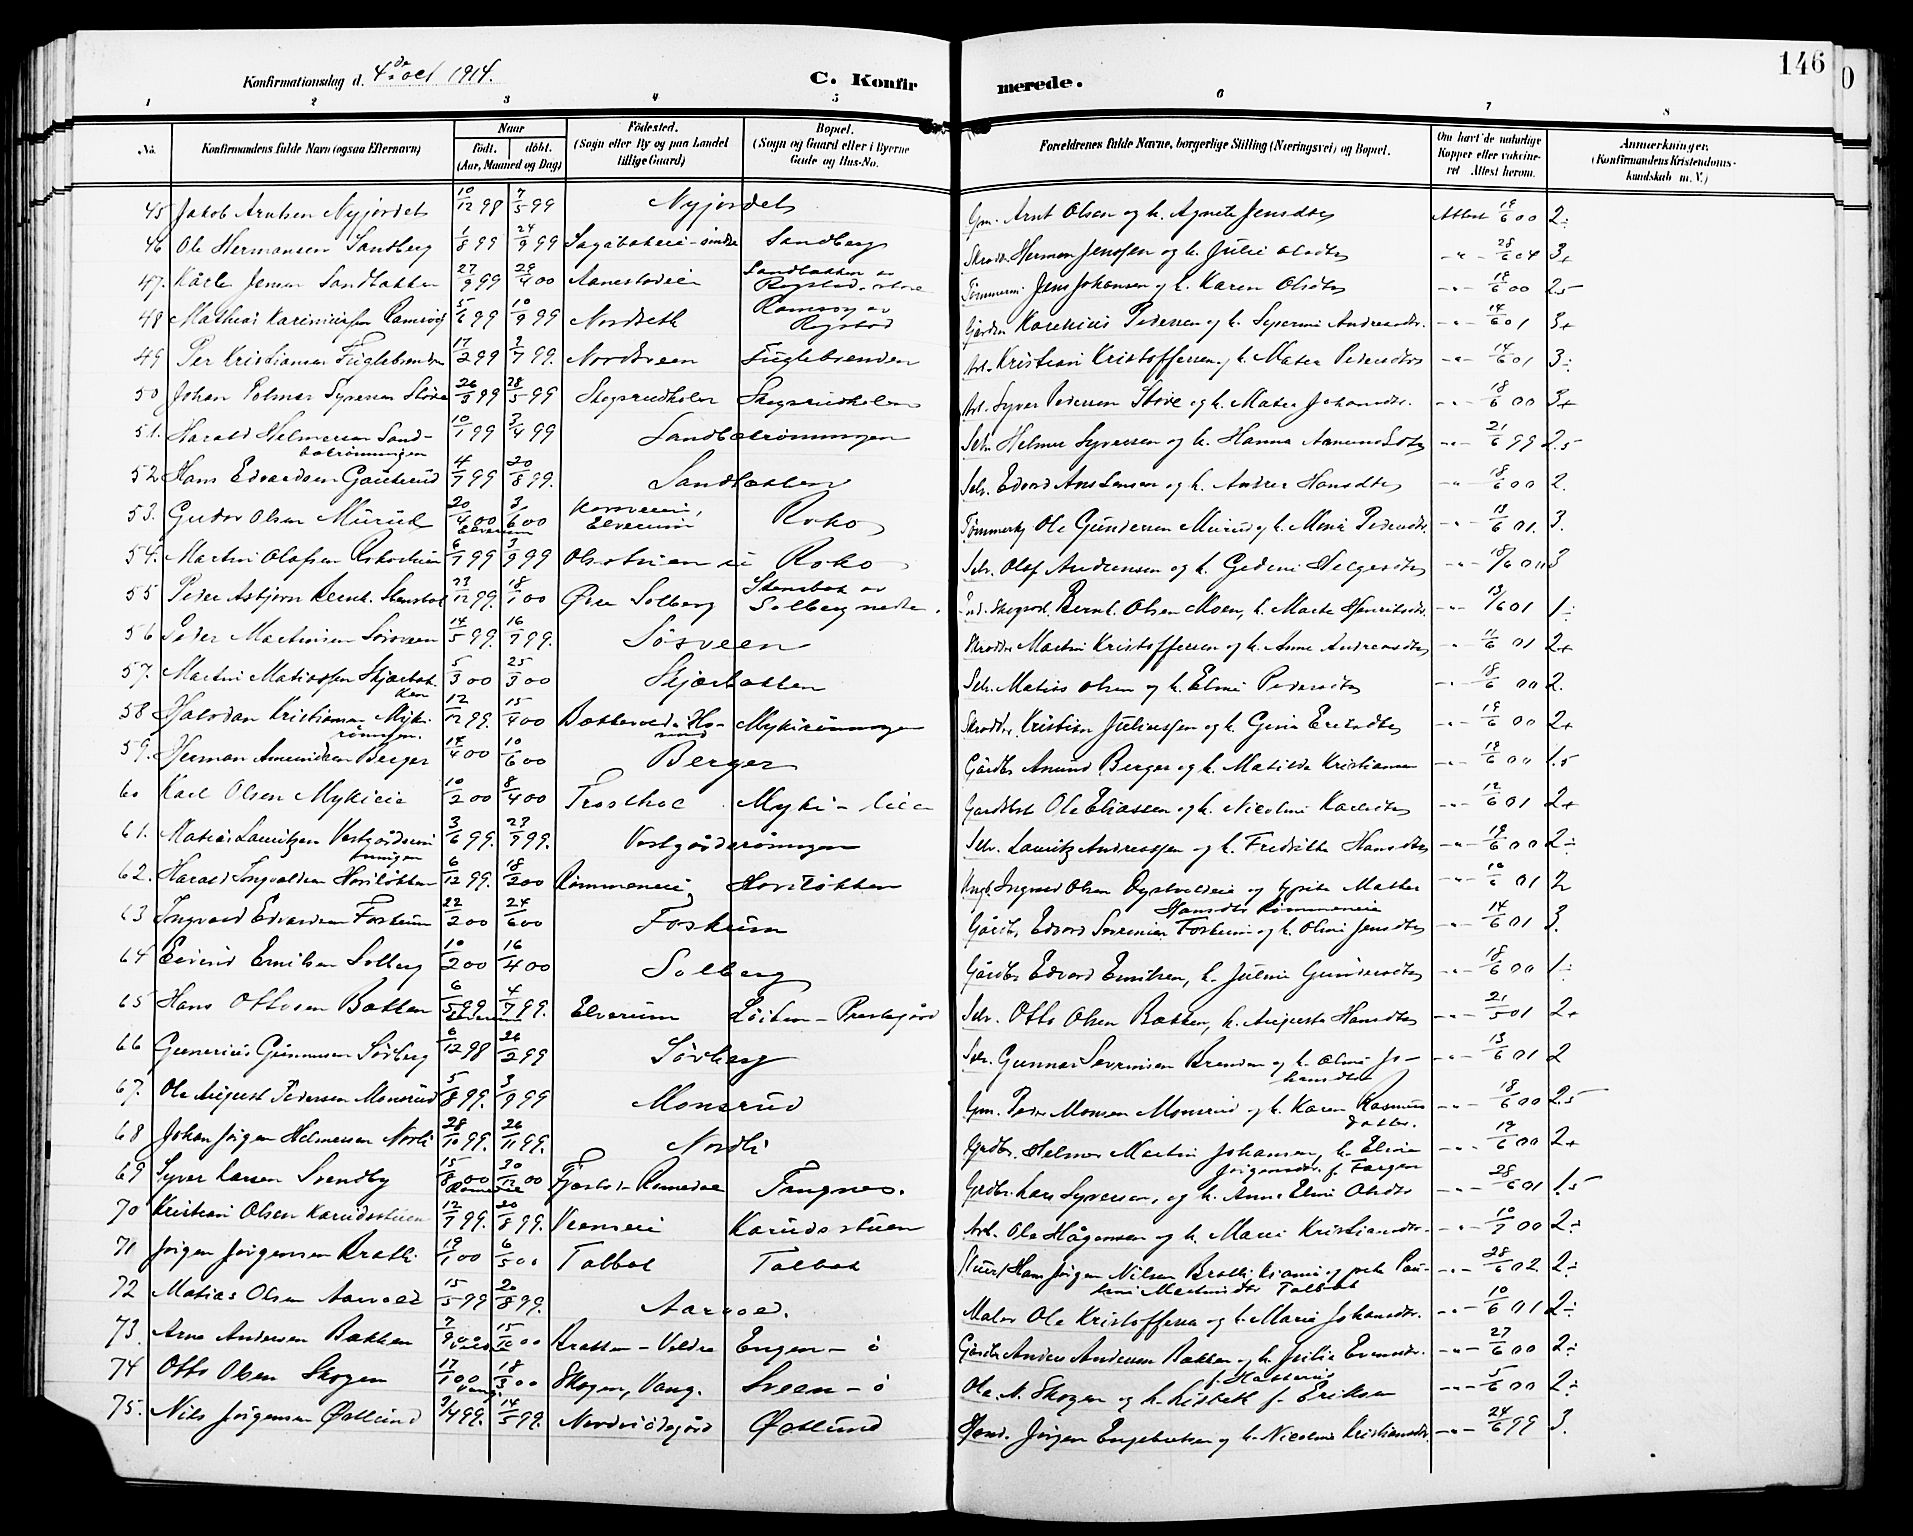 146
0
Konfirmationsdag d. 4de oct 1914.
C. Konfirmerede.
1 2 3 4 5 6 7 8
No. Konfirmandens fulde Navn (ogsaa Efternavn) Naar født. døbt. (Aar, Maaned og Dag) Fødested. (Sogn eller By og paa Landet tillige Gaard) Bopæl. (Sogn og Gaard eller i Byerne Gade og Hus-No. Forældrenes fulde Navne, borgerlige Stilling (Næringsvei) og Bopæl. Om havt de naturlige Kopper eller vaccineret Attest herom. Anmærkninger. (Konfirmandens Kristendomskundskab m. V.)
45 Jakob Arntsen Nyjordet 10/12 98 7/5 99 Nyjordet Gm. Arnt Olsen og h. Agnete Jensdtr Attest 19/6 00 2÷
46 Ole Hermansen Sandberg 1/8 99 24/9 99 Sandberg Skrædd. Herman Jenssen og h. Julie Olsdtr -"- 28/6 04 3+
47. Kåre Jensen Sandbakken 27/9 99 29/4 00 Aanestadeie Sandbakken av Rogstad Tømmerm. Jens Johansen og h. Karen Olsdtr -"- 18/6 00 2.5
48 Mathias Karinius​sen Ramsøy 5/6 99 10/9 99 Nordseth Ramsøy av Rogstad Pedersen og h. Andreasdtr. -"- 14/6 01 3+
49 Per Kristiansen Fuglebrenden 17/2 99 2/7 99. Nordsveen Fuglebrenden Arb. Kristian Kristoffersen og h. Mathea Pedersdtr -"- 14/6 01 3÷
50 Johan Polmar Syversen Støve 26/3 99 28/5 99 Skogsrudholen Skogsrudholen Arb. Syver Pedersen Støve og h. Mathea Johansdtr. -"- 18/6 00 3+
51. Harald Helmersen Sandbakrønningen 10/1 99 3/4 99 Sandbakrønningen Selv. Helmer Syversen og h. Hanna Amundsdtr -"- 21/6 99 2.5
52 Hans Edvardsen Gauterud 4/7 99 20/8 99. Sandbakken Selv. Edvard og h. Andrea Hansdtr -"- 18/6 00 2.
53. Gudor Olsen Murud 20/4 00 Elverum 3/6 00 Elverum Roko Ole Gundersen Murud og h. Pedersdtr -"- 13/6 01. 3.
54. Martin Olafsen Rokostuen 6/7 99 3/9 99 Roko Selv. Olaf Andersen og h. Gedine Helgesdtr -"- 18/6 00 3
55 Peder Asbjørn Bernt. Stensbak 23/12 99. 18/1 00 Øvre Solberg Stensbak av Solberg nedre. Bernt Olsen Moen, h. Marte Henriksdtr -"- 13/6 01 1÷
56 Peder Martinsen Sørsveen 14/5 99. 16/7 99. Sørsveen Skrædder Martin Kristoffersen og h. Anne Andreasdtr -"- 11/6 01 2+
57. Martin Matiassen Skjærbakken 5/3 00 25/3 00 Skjærbakken Selv. Matias Olsen og h. Eline Pedersdtr -"- 18/6 00 2.
58 Halvdan Kristiansen Mykirønningen. 12/12 99. 15/4 00 Mykirønningen Skrædder Kristian Juliussen og h. Gina Eriksdtr -"- 19/6 00 2+
59. Herman Amundsen Berger 14/4 00 10/6 00 Berger Gårdbr Amund Berger og h. Matilde Kristiansen -"- 19/6 00 1.5
60 Karl Olsen Mykilie 10/2 00 8/4 00 Myki-lie Gårdbr Ole Eliassen og h. Nicoline Karlsdtr -"- 12/6 01 2+
61. Matias Lauritzen Vestgårdsrønningen 3/6 99. 23/7 99. Vestgårdsrønningen Selv. Lauritz Andreassen og h. Fredrikke Hansdtr -"- 19/6 00 2÷
62. Harald Ingvaldsen Horsløkken 6/12 99. 18/2 00 Rømmeneie Horsløkken Ungk. Ingvald Olsen og pike Mathea Hansdtr Rømmeneie -"- 6 01 2
63 Ingvald Edvardsen Foskum 22/2 00 24/6 00 Foskum Gårdbr. Edvard Severinsen Foskum og h. Oline Jensdtr -"- 14/6 01 3.
64 Eivind Emilsen Solberg 10/2 00 16/4 00 Solberg Gårdbr. Edvard Emilsen, h. Julie Gundersdtr -"- 18/6 00 1÷
65 Hans Ottosen Bakken 6/5 99 Elverum 4/7 99. Elverum Løiten-Prestegård Selv. Otto Olsen Bakken, h. Augusta Hansdtr -"- 21/5 01 2+
66 Gunerius Gunnarsen Sörberg 6/12 98 26/2 99 Sörberg Selv. Gunnar Severinsen Brenden og h. Oline Johansdtr -"- 13/6 01 2
67. Ole August Pedersen Monsrud 5/8 99. 3/9 99 Monsrud Gm. Peder Monsen Monsrud og h. Karen Rasmusdatter. -"- 18/6 00 2.5
68 Johan Jörgen Helmersen Nordli 28/10 99. 26/11 99. Nordli Grdbr. Helmer Martin Johansen, h. Eline Jörgensdtr. -"- 19/6 00 2+
69 Syver Larsen Svendby 15/8 00 Romedal 30/12 00 Romedal Tingnes. Grdbr. Lars Syversen, og h. Anne Eline Olsdtr -"- 28/6 01 1.5
70 Kristian Olsen Karudsstuen 12/7 99. 20/8 99. Karudsstuen Arb. Ole Hågensen og h. Marie Kristiansdtr. -"- 10/7 00 2÷
71 Jörgen Jörgensen Bratli. 19/1 00 6/5 00 Talbak Talbak Hans Jörgen Nilsen Bratli og pike Pauline Martinsdtr Talbak -"- 28/6 02 2÷
72 Matias Olsen Aarvold 15/5 99 20/8 99. Aarvold. Maler Ole Kristoffersen og h. Marie Johansdtr. -"- 10/6 01 2÷
73. Arne Andersen Bakken 7/9 00 Veldre 15/10 00 Bratten-Veldre Engen-ö Gårdbr Anders Andersen Bakken og h. Julie Evensdtr. -"- 27/6 00 2÷
74 Otto Olsen Skogen 17/1 00 Vang. 18/3 00 Skogen, Vang. Sveen-ö Ole N. Skogen og h. Lisbeth f. Eriksen -"- 5/6 00 2÷
75. Nils Jörgensen Østlund 9/4 99. 14/5 99. Østlund Jörgen Engebretsen og h. Nicoline Kristiansdtr. -"- 24/6 99 3.